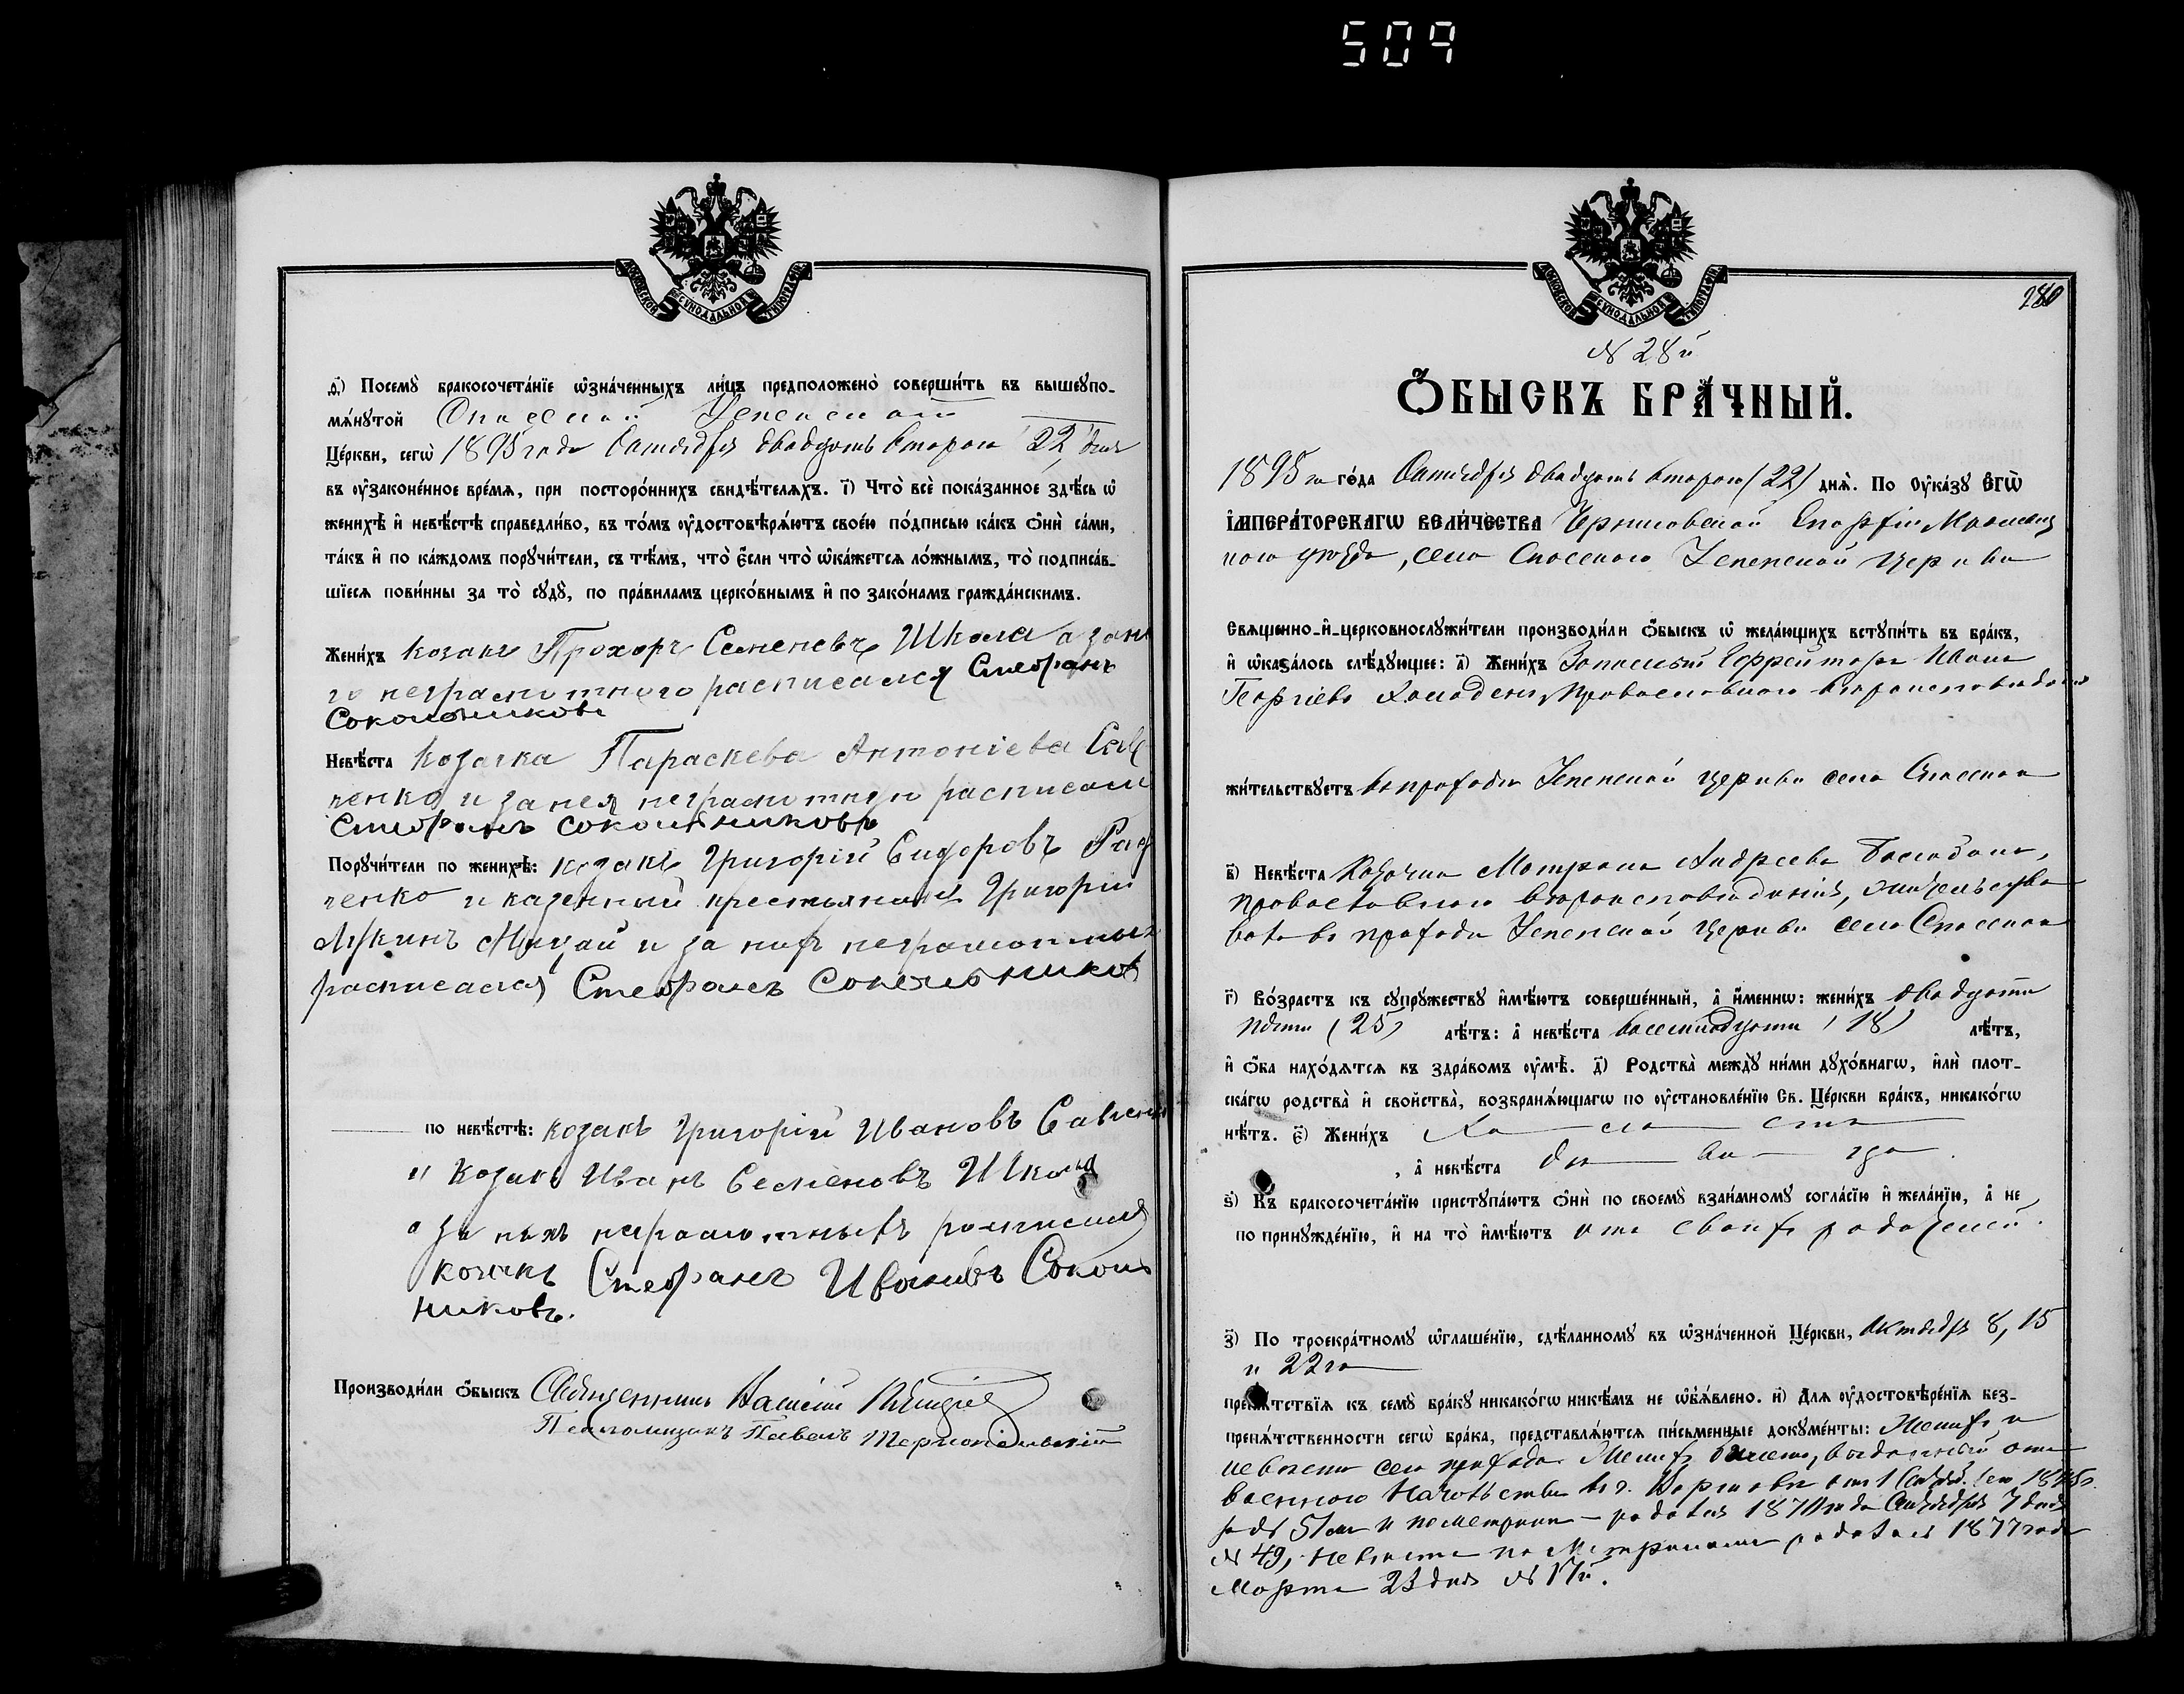 509
МОСКОВСКОЙ СѴНОДАЛЬНОЙ ТИПОГРАФІИ
д҃) Посемꙋ̀ бракосочета́нїе ѡ҆зна́ченныхъ ли́цъ предположено̀ соверши́ть въ вышеꙋпо-
мѧ́нꙋтой Спасской Успенской
Це́ркви, сегѡ̀ 1895 года Октября двадцать второго 22 дня
въ ᲂу҆зако́ненное вре́мѧ, при посторо́ннихъ свидѣ́телѧхъ. і҃) Что̀ всѐ пока́занное здѣ́сь ѡ҆
женихѣ̀ и҆ невѣ́стѣ справедли́во, въ то́мъ ᲂу҆достовѣрѧ́ютъ свое́ю по́дписью ка́къ ѻ҆нѝ са́ми,
та́къ и҆ по ка́ждомъ порꙋчи́тели, съ тѣ́мъ, что̀ є҆́сли что̀ ѡ҆ка́жетсѧ ло́жнымъ, то̀ подписа́в-
шїесѧ пови́нны за то̀ сꙋдꙋ̀, по пра́виламъ церко́внымъ и҆ по зако́намъ гражда́нскимъ.
Жени́хъ козакъ Прохоръ Семеновъ Школа а за не
го неграмотного расписался Стефанъ
Сокольниковъ
Невѣ́ста Козачка Параскева Антоніева Сав
ченко и за нея неграмотную расписался
Стефанъ Сокольниковъ
Порꙋчи́тели по женихѣ̀: козакъ Григорій Сидоровъ Рад
ченко и казенный крестьянинъ Григорій
Лукинъ и за нихъ неграмотныхъ
расписался Стефанъ Сокольников
по невѣ́стѣ: козакъ Григорій Ивановъ Савченко
и козакъ Иванъ Семеновъ Школа
а за нихъ неграмотныхъ росписался
козакъ Стефанъ Ивановъ Соколь
никовъ.
Производи́ли ѻ҆́быскъ Священникъ Василій
Псаломщикъ Павелъ Тернопольскій
МОСКОВСКОЙ СѴНОДАЛЬНОЙ ТИПОГРАФІИ
280
№ 28й
Ѻ҆́БЫСКЪ БРА́ЧНЫЙ.
1895 го го́да Октября двадцать второго (22) днѧ̀. По ᲂу҆ка́зꙋ Є҆гѡ̀
І҆мпера́торскагѡ вели́чества Черниговской Епархіи Кролевец
кого уѣзда, села Спасского Успенской Церкви
Свѧще́нно-и҆-церковнослꙋжи́тели производи́ли ѻ҆́быскъ ѡ҆ жела́ющихъ встꙋпи́ть въ бра́къ,
и҆ ѡ҆каза́лось слѣ́дꙋющее: а҃) Жени́хъ Запасный Ефрейторъ Иванъ
Георгіевъ Холоденъ, Православного вѣроисповѣданія
жи́тельствꙋетъ въ приходѣ Успенской церкви села Спасского
в҃) Невѣ́ста Козачка Матрона Андреева Баглабана,
православного вѣроисповѣданія, жительство
вала въ приходѣ Успенской Церкви села Спасского
г҃) Во́зрастъ къ сꙋпрꙋ́жествꙋ и҆мѣ́ютъ соверше́нный, а҆ и҆́меннѡ: жени́хъ двадцати
пяти (25) лѣ́тъ: а҆ невѣ́ста восемнадцати (18) лѣ́тъ,
и҆ ѻ҆́ба нахо́дѧтсѧ въ здра́вомъ ᲂу҆мѣ̀. д҃) Родства̀ междꙋ̀ ни́ми дꙋхо́внагѡ, и҆лѝ плот-
ска́гѡ родства̀ и҆ свойства̀, возбранѧ́ющагѡ по ᲂу҆становле́нїю Св. Це́ркви бра́къ, никако́гѡ
нѣ́тъ. є҃) Жени́хъ Хо — ло — стъ
, а҆ невѣ́ста дѣ — ви — ца.
ѕ҃) Къ бракосочета́нїю пристꙋпа́ютъ ѻ҆нѝ по своемꙋ̀ взаи́мномꙋ согла́сїю и҆ жела́нїю, а҆ не
по принꙋжде́нїю, и҆ на то̀ и҆мѣ́ютъ отъ своихъ родителей.
з҃) По троекра́тномꙋ ѡ҆глаше́нїю, сдѣ́ланномꙋ въ ѡ҆зна́ченной Це́ркви, Октября 8, 15
и 22го
препѧ́тствїѧ къ семꙋ̀ бра́кꙋ никако́гѡ никѣ́мъ не ѡ҆б̾ѧ́влено. и҃) Для ᲂу҆достовѣре́нїѧ без-
препѧ́тственности сегѡ̀ бра́ка, представлѧ́ютсѧ пи́сьменные докꙋме́нты: Женихъ и
невѣста сего прихода. Женихъ билетъ, выданный отъ
военного Начальства въ г. Варшавѣ отъ 1 1895г.
за № 51м и по метрикѣ — родился 1870 года Октября 7 дня
№ 49, Невѣста по Метрикамъ родилась 1877 года
Марта 23 дня № 17й.